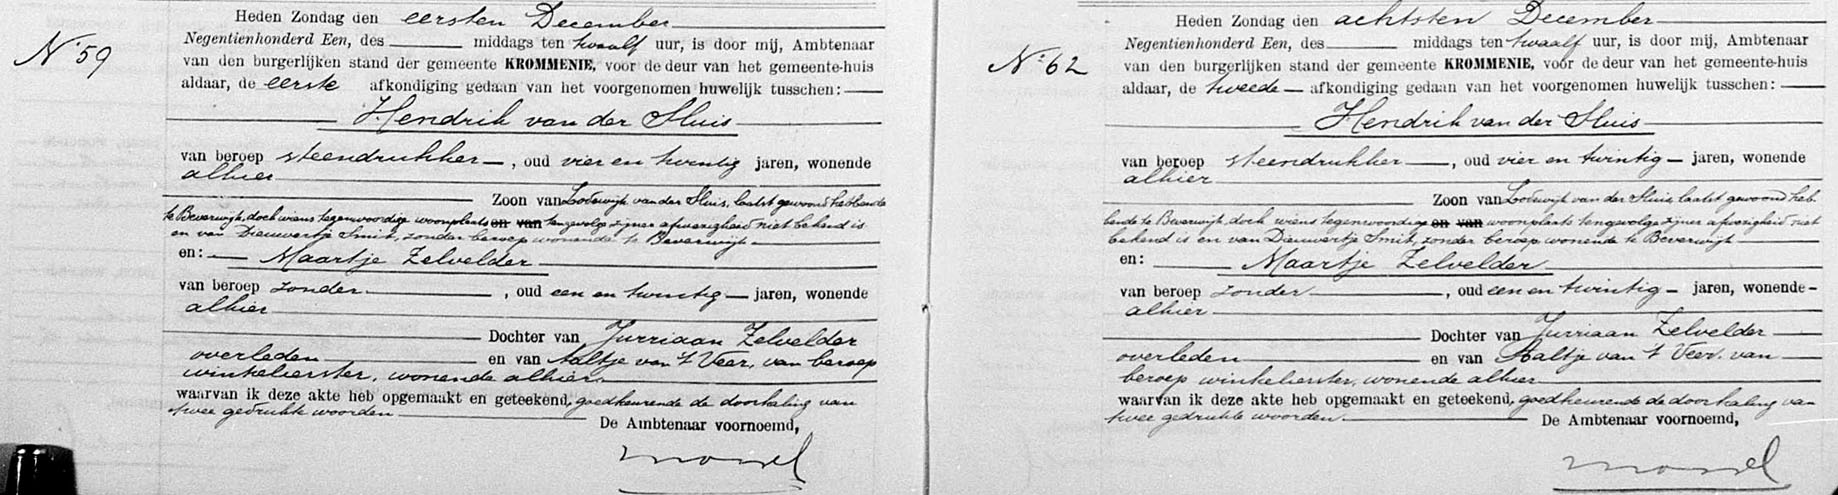 N° 59
Heden Zondag den eersten December
Negentienhonderd Een, des middags ten twaalf uur, is door mij, Ambtenaar
van den burgerlijken stand der gemeente KROMMENIE, voor de deur van het gemeente-huis
aldaar, de eerste afkondiging gedaan van het voorgenomen huwelijk tusschen:
Hendrik van der Sluis
van beroep steendrukker, oud vier en twintig jaren, wonende
alhier
Zoon van Lodewijk van der Sluis, laatst gewoond hebbende
te Beverwijk, doch wiens tegenwoordige woonplaats en van tengevolge zijner afwezigheid niet bekend is
en van Dieuwertje Smit, zonder beroep wonende te Beverwijk
en: Maartje Zelvelder
van beroep zonder, oud een en twintig jaren, wonende
alhier
Dochter van Jurriaan Zelvelder
overleden en van Aaltje van 't Veer, van beroep
winkelierster, wonende alhier
waarvan ik deze akte heb opgemaakt en geteekend, goedkeurende de doorhaling van
twee gedrukte woorden
De Ambtenaar voornoemd,
N° 62
Heden Zondag den achtsten December
Negentienhonderd Een, des middags ten twaalf uur, is door mij, Ambtenaar
van den burgerlijken stand der gemeente KROMMENIE, voor de deur van het gemeente-huis
aldaar, de tweede afkondiging gedaan van het voorgenomen huwelijk tusschen:
Hendrik van der Sluis
van beroep steendrukker, oud vier en twintig jaren, wonende
alhier
Zoon van Lodewijk van der Sluis, laatst gewoond heb
bende te Beverwijk doch wiens tegenwoordige en van woonplaats tengevolge zijner afwezigheid niet
bekend is en van Dieuwertje Smit, zonder beroep wonende te Beverwijk
en: Maartje Zelvelder
van beroep zonder, oud een en twintig jaren, wonende
alhier
Dochter van Jurriaan Zelvelder
overleden en van Aaltje van 't Veer, van
beroep winkelierster, wonende alhier
waarvan ik deze akte heb opgemaakt en geteekend, goedkeurende de doorhaling van
twee gedrukte woorden.
De Ambtenaar voornoemd,